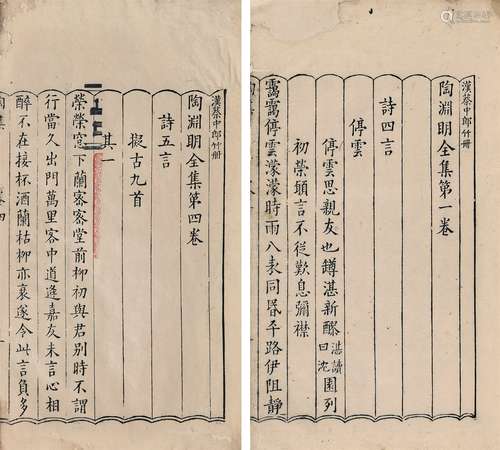 漢蔡中郎竹冊
陶淵明全集第一卷
詩四言
停雲
停雲思親友也罇湛新醪湛讀曰沈園列
初榮願言不從歎息彌襟
靄靄停雲濛濛時雨八表同昬平路伊阻靜
漢蔡中郎竹冊
陶淵明全集第四卷
詩五言
擬古九首
其一
榮榮窓下蘭密密堂前柳初與君別時不謂
行當久出門萬里客中道逢嘉友未言心相
醉不在接杯酒蘭枯柳亦衰遂令此言負多